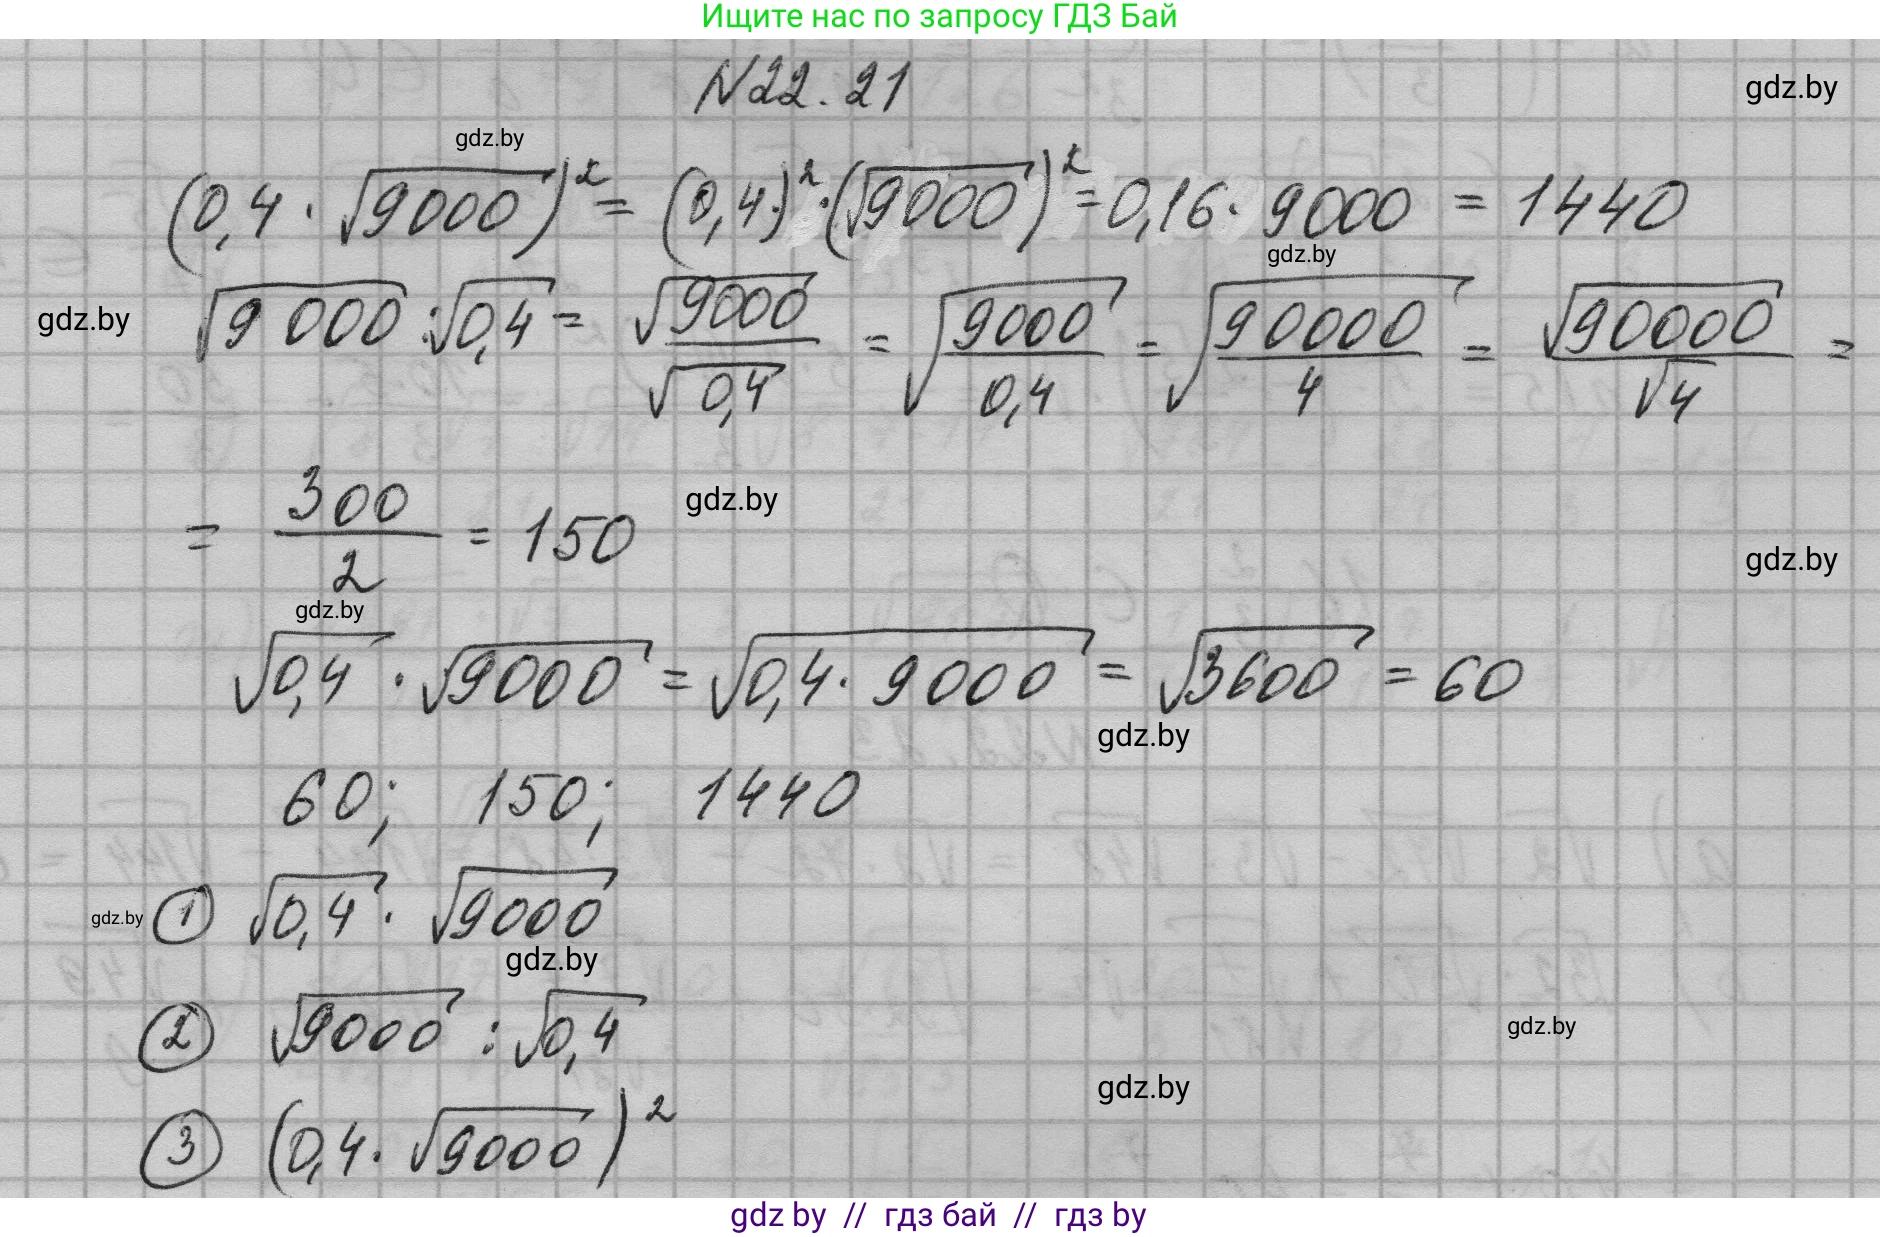 Ищите нас по запросу ГДЗ Бай
N22.21
gdz.by
gdz.by
(0,4 · √9000)² = (0,4)² · (√9000)² = 0,16 · 9000 = 1440
gdz.by
gdz.by
√9 000 : √0,4 = √9000/√0,4 = √(9000/0,4) = √(90000/4) = √90000/√4 =
= 300/2 = 150
gdz.by
gdz.by
gdz.by
√0,4 · √9000 = √(0,4 · 9000) = √3600 = 60
gdz.by
60; 150; 1440
① √0,4 · √9000
gdz.by
gdz.by
② √9000 : √0,4
gdz.by
gdz.by
③ (0,4 · √9000)²
gdz by // гдз бай // гдз by